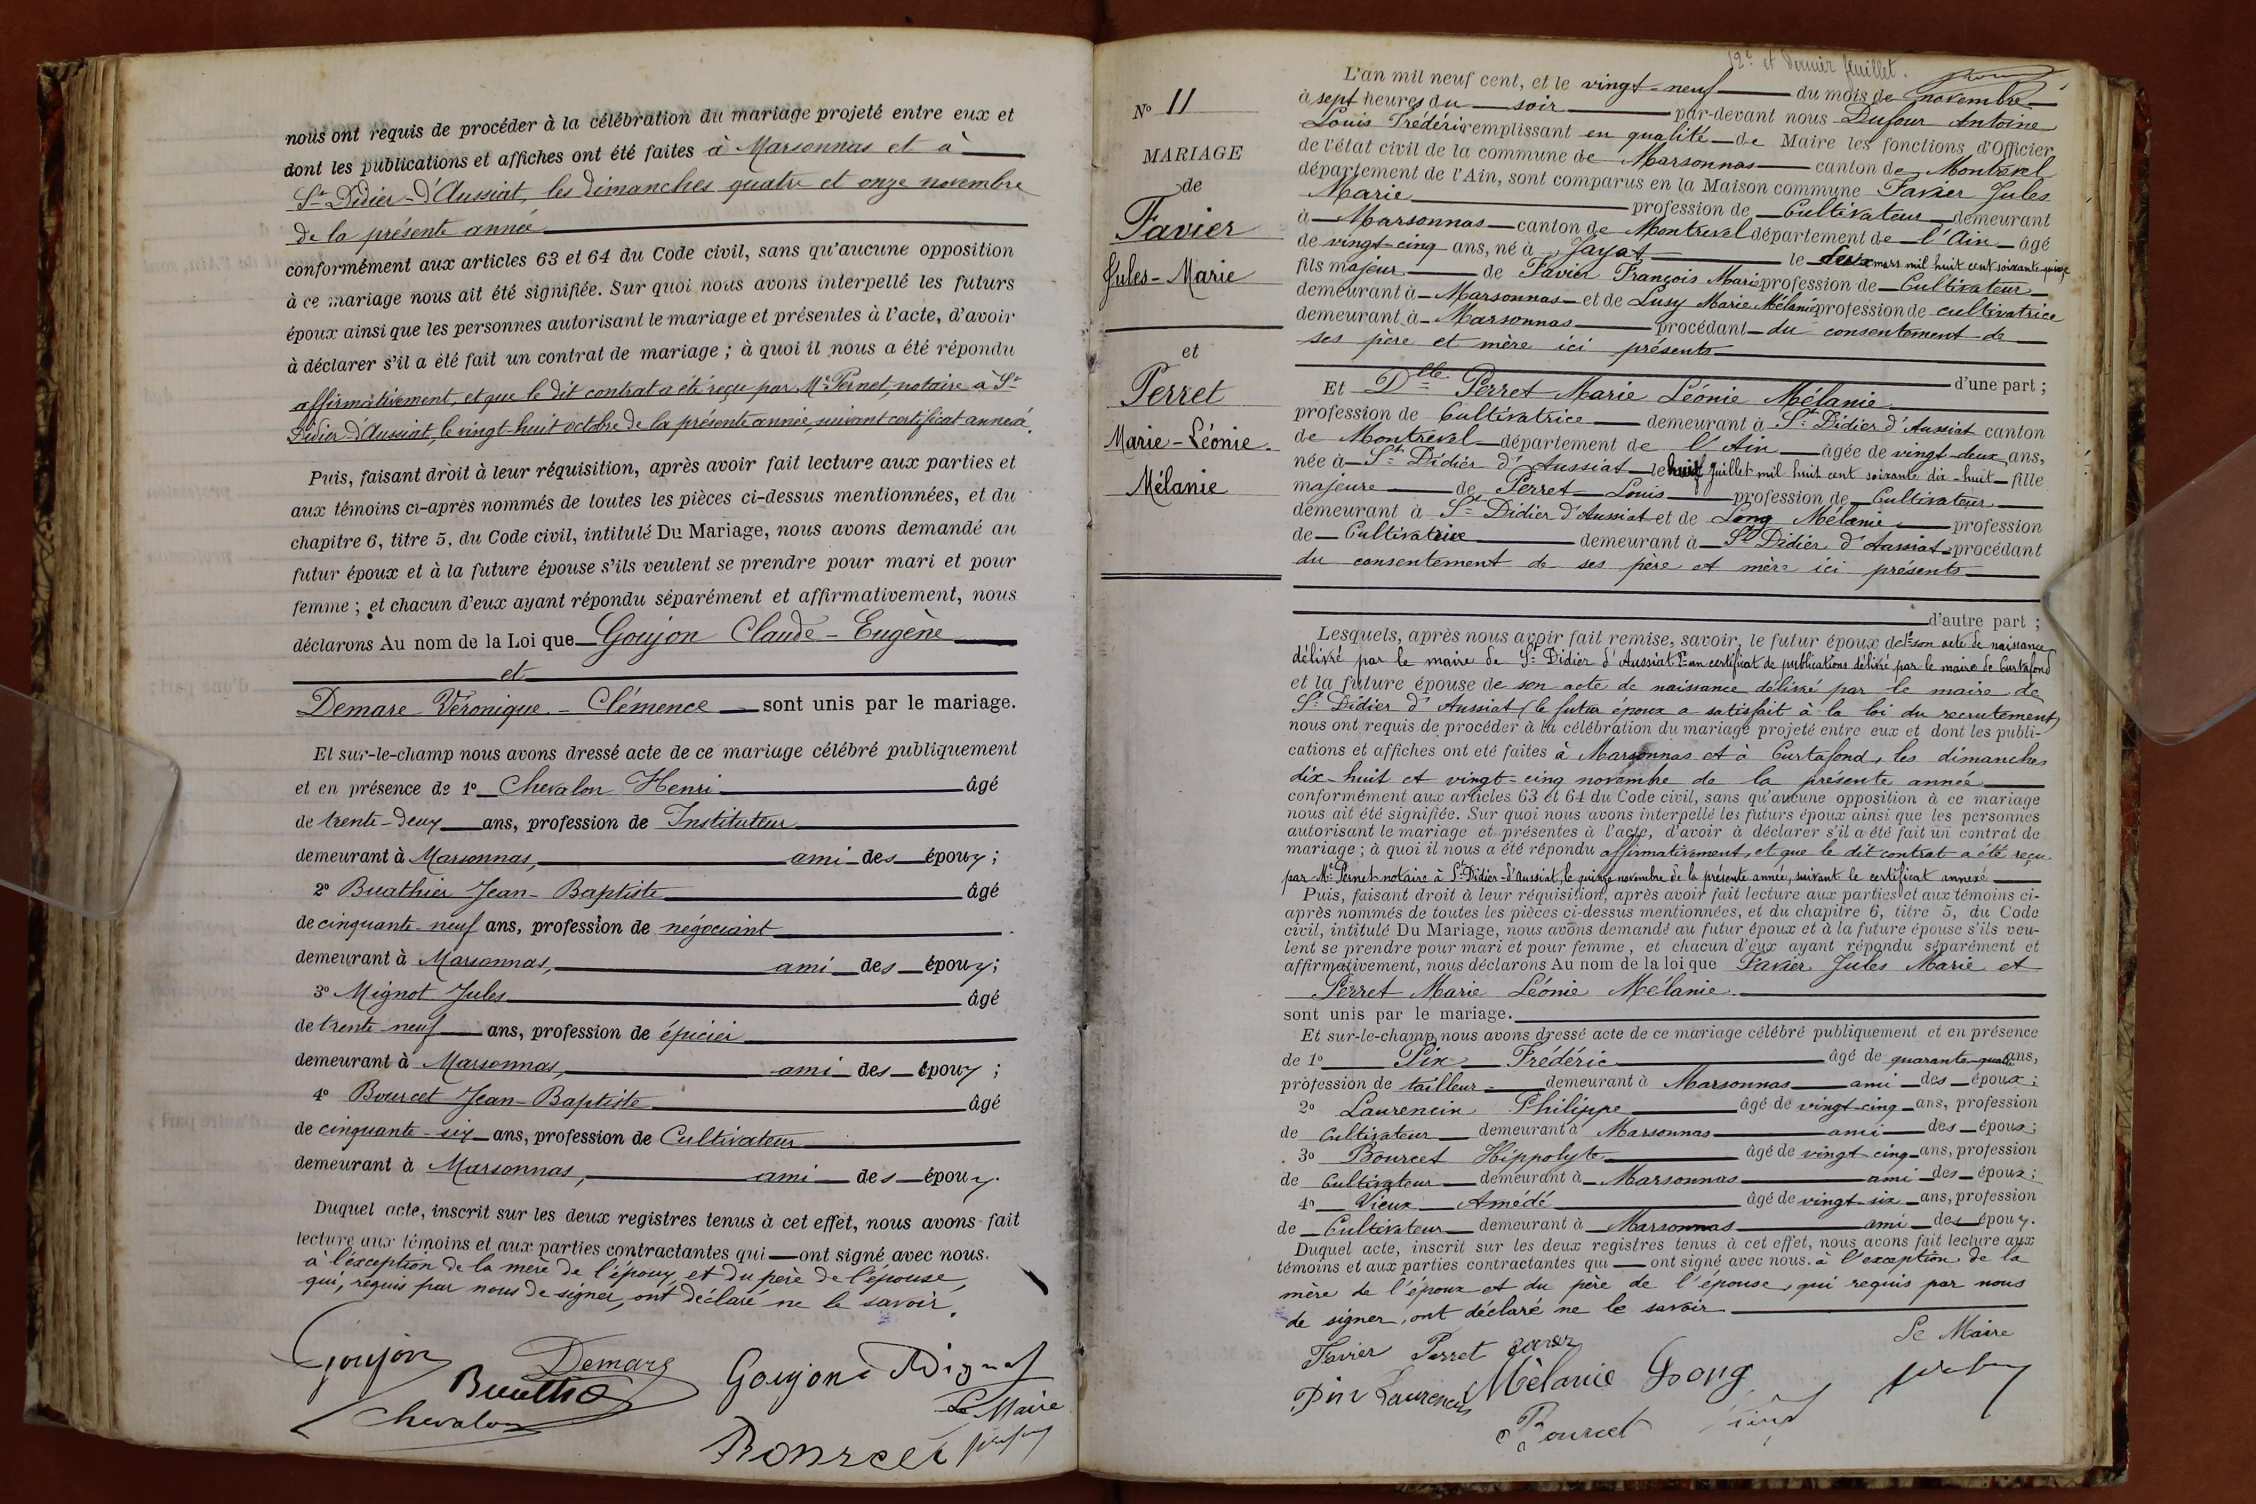 nous ont requis de procéder à la célébration du mariage projeté entre eux et
dont les publications et affiches ont été faites à Marsonnas et à
St Didier-d'Aussiat, les dimanches quatre et onze novembre
de la présente année
conformément aux articles 63 et 64 du Code civil, sans qu'aucune opposition
à ce mariage nous ait été signifiée. Sur quoi nous avons interpellé les futurs
époux ainsi que les personnes autorisant le mariage et présentes à l'acte, d'avoir
à déclarer s'il a été fait un contrat de mariage ; à quoi il nous a été répondu
affirmativement, et que le dit contrat a été reçu par Me Pernet, notaire à St
Didier-d'Aussiat, le vingt-huit octobre de la présente année, suivant certificat annexé.
Puis, faisant droit à leur réquisition, après avoir fait lecture aux parties et
aux témoins ci-après nommés de toutes les pièces ci-dessus mentionnées, et du
chapitre 6, titre 5, du Code civil, intitulé Du Mariage, nous avons demandé au
futur époux et à la future épouse s'ils veulent se prendre pour mari et pour
femme ; et chacun d'eux ayant répondu séparément et affirmativement, nous
déclarons Au nom de la Loi que Goujon Claude-Eugène
et
Demare Véronique-Clémence sont unis par le mariage.
Et sur-le-champ nous avons dressé acte de ce mariage célébré publiquement
et en présence de 1° Chevalon Henri âgé
de trente-deux ans, profession de Instituteur
demeurant à Marsonnas, ami des époux ;
2° Buathier Jean-Baptiste âgé
de cinquante-neuf ans, profession de négociant
demeurant à Marsonnas, ami des époux ;
3° Mignot Jules âgé
de trente-neuf ans, profession de épicier
demeurant à Marsonnas, ami des époux ;
4° Bourcet Jean-Baptiste âgé
de cinquante-six ans, profession de Cultivateur
demeurant à Marsonnas, ami des époux.
Duquel acte, inscrit sur les deux registres tenus à cet effet, nous avons fait
lecture aux témoins et aux parties contractantes qui ont signé avec nous.
à l'exception de la mère de l'époux et du père de l'épouse,
qui, requis par nous de signer, ont déclaré ne le savoir.
Goujon Demare Goujon Mignot
Buathier
Chevalon Le Maire
Bourcet
12e et dernier feuillet.
N° 11
MARIAGE
de
Favier
Jules-Marie
et
Perret
Marie-Léonie.
Mélanie
L'an mil neuf cent, et le vingt-neuf du mois de novembre
à sept heures du soir par-devant nous Dufour Antoine
Louis Frédéric remplissant en qualité de Maire les fonctions d'Officier
de l'état civil de la commune de Marsonnas canton de Montrevel
département de l'Ain, sont comparus en la Maison commune Favier Jules
Marie profession de Cultivateur demeurant
à Marsonnas canton de Montrevel département de l'Ain âgé
de vingt-cinq ans, né à Jayat le deux mars mil huit cent soixante quinze
fils majeur de Favier François Marie profession de Cultivateur
demeurant à Marsonnas et de Lusy Marie Mélanie profession de cultivatrice
demeurant à Marsonnas procédant du consentement de
ses père et mère ici présents
d'une part ;
Et Dlle Perret Marie Léonie Mélanie
profession de Cultivatrice demeurant à St Didier d'Aussiat canton
de Montrevel département de l'Ain âgée de vingt-deux ans,
née à St Didier d'Aussiat le huit juillet mil huit cent soixante dix-huit fille
majeure de Perret Louis profession de Cultivateur
demeurant à St Didier d'Aussiat et de Long Mélanie profession
de Cultivatrice demeurant à St Didier d'Aussiat procédant
du consentement de ses père et mère ici présents
d'autre part ;
Lesquels, après nous avoir fait remise, savoir, le futur époux de 1° son acte de naissance
délivré par le maire de St Didier d'Aussiat 2° un certificat de publications délivré par le maire de Curtafond
et la future épouse de son acte de naissance délivré par le maire de
St Didier d'Aussiat (le futur époux a satisfait à la loi du recrutement)
nous ont requis de procéder à la célébration du mariage projeté entre eux et dont les publi-
cations et affiches ont été faites à Marsonnas et à Curtafond, les dimanches
dix-huit et vingt-cinq novembre de la présente année
conformément aux articles 63 et 64 du Code civil, sans qu'aucune opposition à ce mariage
nous ait été signifiée. Sur quoi nous avons interpellé les futurs époux ainsi que les personnes
autorisant le mariage et présentes à l'acte, d'avoir à déclarer s'il a été fait un contrat de
mariage ; à quoi il nous a été répondu affirmativement, et que le dit contrat a été reçu
par Me Pernet notaire à St Didier-d'Aussiat, le quinze novembre de la présente année, suivant le certificat annexé
Puis, faisant droit à leur réquisition, après avoir fait lecture aux parties et aux témoins ci-
après nommés de toutes les pièces ci-dessus mentionnées, et du chapitre 6, titre 5, du Code
civil, intitulé Du Mariage, nous avons demandé au futur époux et à la future épouse s'ils veu-
lent se prendre pour mari et pour femme, et chacun d'eux ayant répondu séparément et
affirmativement, nous déclarons Au nom de la loi que Favier Jules Marie et
Perret Marie Léonie Mélanie
sont unis par le mariage.
Et sur-le-champ nous avons dressé acte de ce mariage célébré publiquement et en présence
de 1° Pin Frédéric âgé de quarante-quatre ans,
profession de tailleur demeurant à Marsonnas ami des époux ;
2° Laurencin Philippe âgé de vingt-cinq ans, profession
de Cultivateur demeurant à Marsonnas ami des époux ;
3° Bourcet Hippolyte âgé de vingt-cinq ans, profession
de Cultivateur demeurant à Marsonnas ami des époux ;
4° Vieux Amédé âgé de vingt-six ans, profession
de Cultivateur demeurant à Marsonnas ami des époux.
Duquel acte, inscrit sur les deux registres tenus à cet effet, nous avons fait lecture aux
témoins et aux parties contractantes qui ont signé avec nous. à l'exception de la
mère de l'époux et du père de l'épouse, qui requis par nous
de signer, ont déclaré ne le savoir
Favier Perret Le Maire
Pin Laurencin Mélanie Long
Bourcet